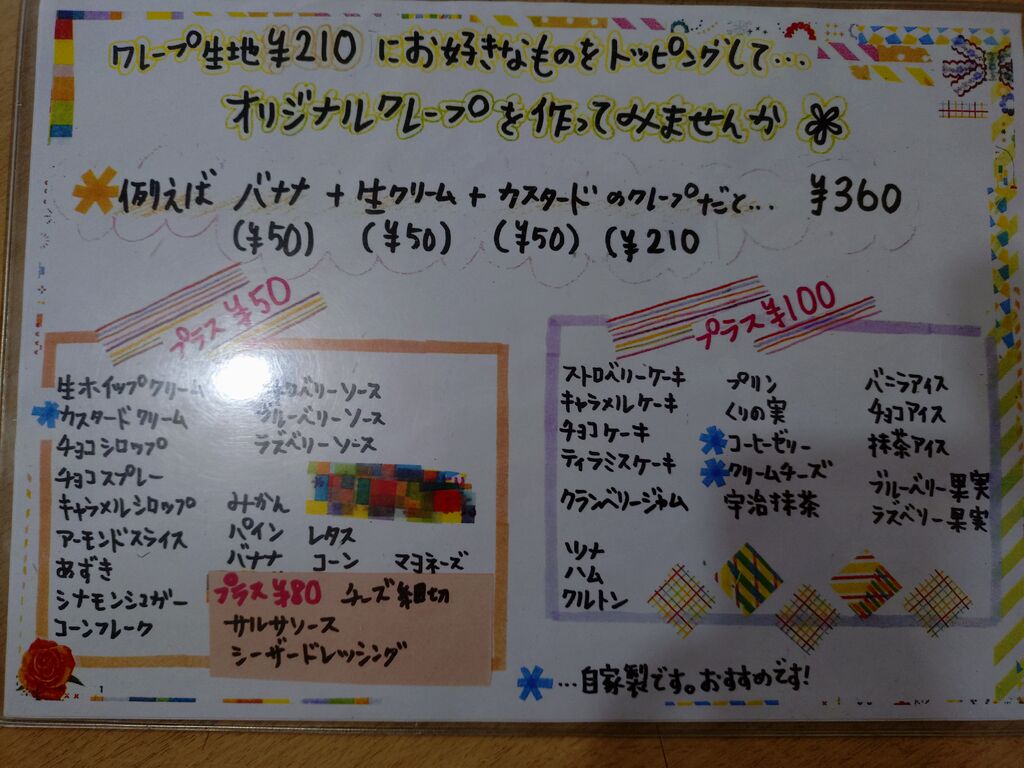 クレープ生地¥210にお好きなものをトッピングして…
オリジナルクレープを作ってみませんか
例えば バナナ + 生クリーム + カスタードのクレープだと… ¥360
(¥50) (¥50) (¥50) (¥210
プラス¥50
生ホイップクリーム
カスタードクリーム
チョコシロップ
チョコスプレー
キャラメルシロップ
アーモンドスライス
あずき
シナモンシュガー
コーンフレーク
ロベリーソース
ブルーベリーソース
ラズベリーソース
みかん
パイン レタス
バナナ コーン マヨネーズ
プラス¥80 チーズ
サルサソース
シーザードレッシング
プラス¥100
ストロベリーケーキ
キャラメルケーキ
チョコケーキ
ティラミスケーキ
クランベリージャム
ツナ
ハム
クルトン
プリン
くりの実
コーヒーゼリー
クリームチーズ
宇治抹茶
バニラアイス
チョコアイス
抹茶アイス
ブルーベリー果実
ラズベリー果実
…自家製です。おすすめです!
1